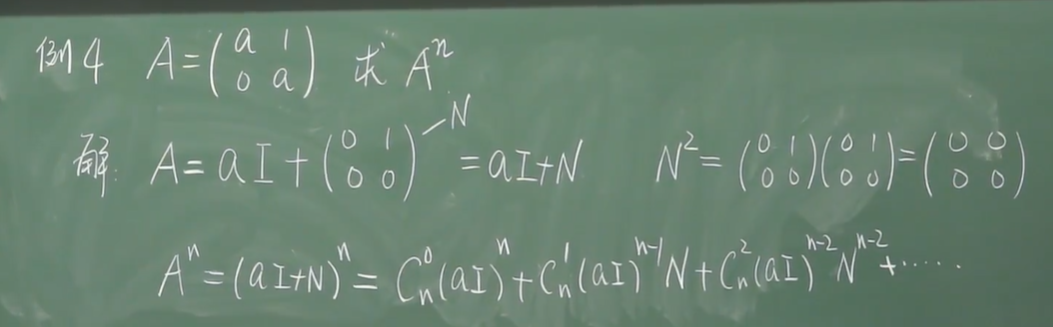 例4 A=(a 1
0 a) 求 A^n
解: A=aI+(0 1
0 0)—N =aI+N N^2=(0 1
0 0)(0 1
0 0)=(0 0
0 0)
A^n=(aI+N)^n=C_n^0(aI)^n+C_n^1(aI)^{n-1}N+C_n^2(aI)^{n-2}N^{n-2}+······